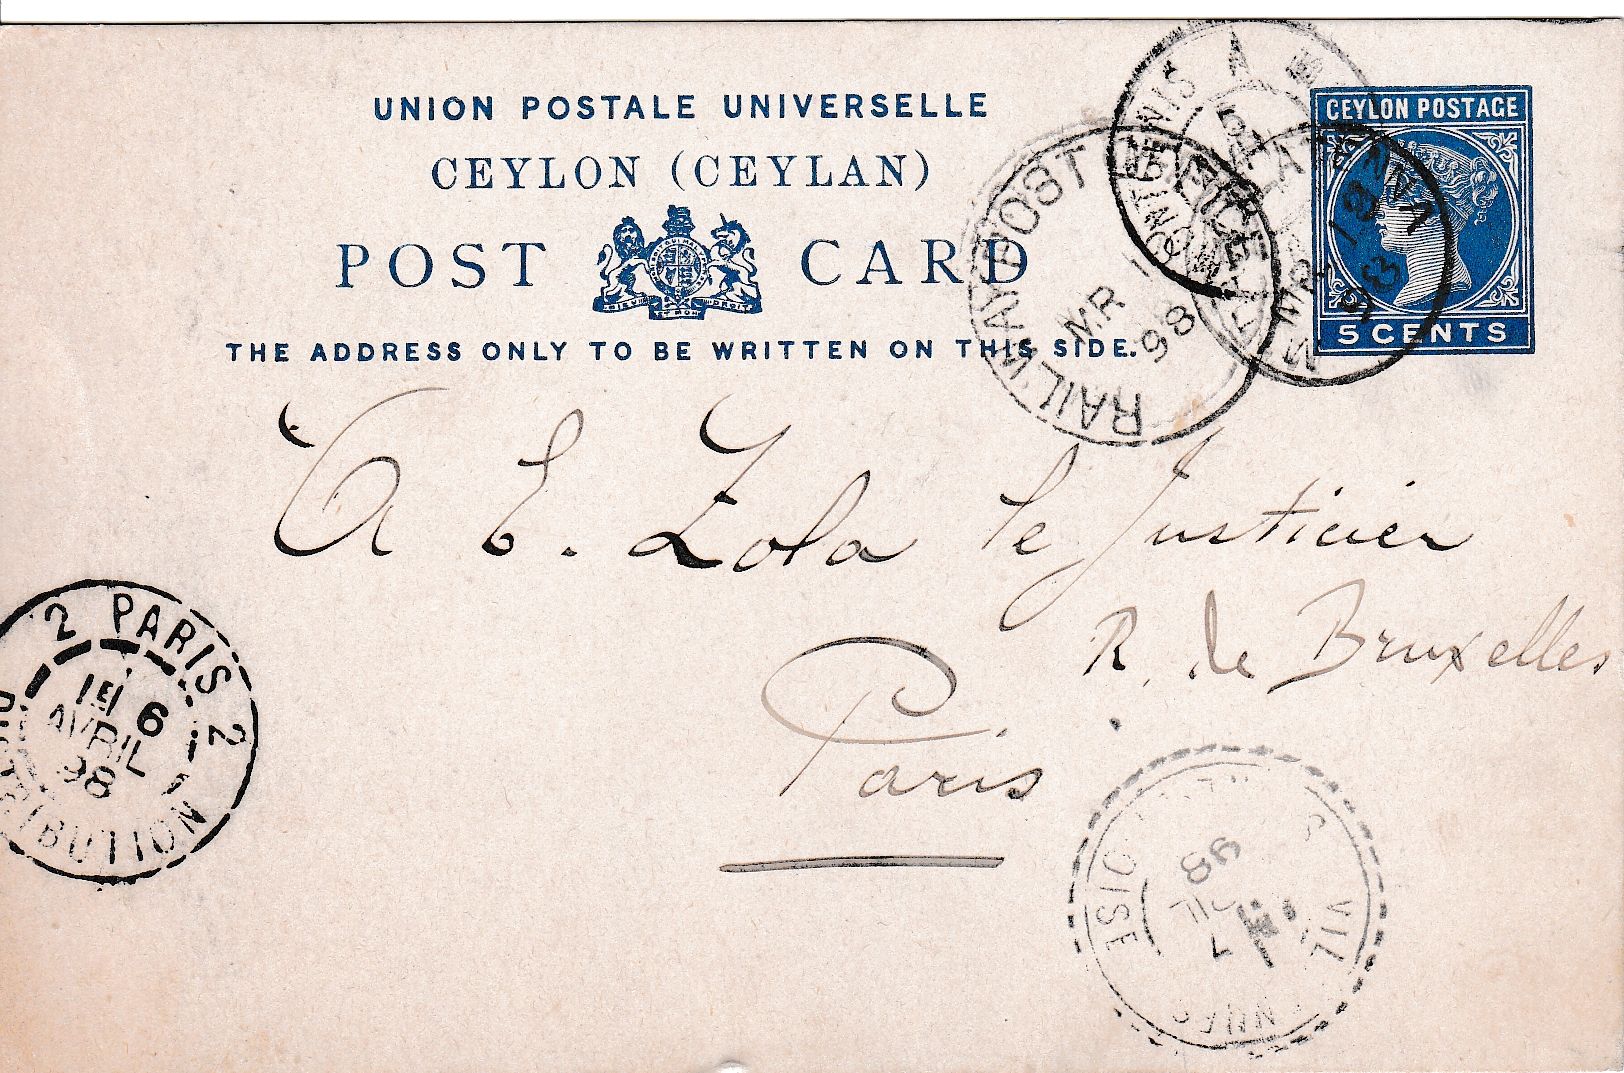 UNION POSTALE UNIVERSELLE
CEYLON POSTAGE
CEYLON (CEYLAN)
POST CARD
5 CENTS
THE ADDRESS ONLY TO BE WRITTEN ON THIS SIDE.
RAILWAY POST
MR
98
MR 19
98
A E. Zola le Justicier
R. de Bruxelles
Paris
2 PARIS 2
6
AVRIL
98
DISTRIBUTION
7
98